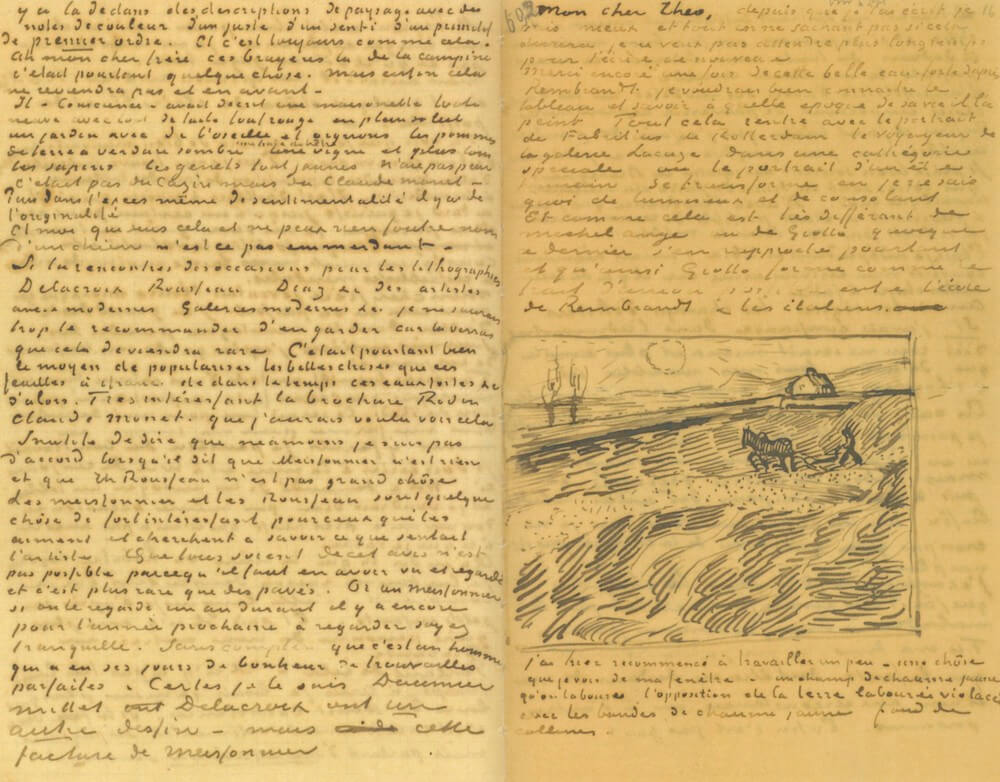 y a là dedans des descriptions de paysage avec des
notes de couleur d'un juste d'un senti d'un primitif
de premier ordre. Et c'est toujours comme cela.
Ah mon cher frère ces bruyères là de la campine
c'etait pourtant quelque chôse. Mais enfin cela
ne reviendra pas et en avant –
Il – Conscience – avait décrit une maisonette toute
neuve avec toit de tuile tout rouge en plein soleil
un jardin avec de l'oseille et oignons les pommes
de terre à verdure sombre une vigne et plus loin
les sapins les genets tout jaunes n'aie pas peur
c'etait pas du Cazin mais du Claude monet –
Puis dans l'excès même de sentimentalité il y a de
l'originalité
Et moi qui sens cela et ne peux rien foutre nom
d'un chien n'est ce pas emmerdant –
Si tu rencontres des occasions pour les lithographies
Delacroix Rousseau Diaz &c des artistes
anc. & modernes Galeries modernes &c je ne saurais
trop te recommander d'en garder car tu verras
que cela deviendra rare C'était pourtant bien
le moyen de populariser les belles choses que ces
feuilles à 1 franc de dans le temps ces eaux fortes &c
d'alors. Très intéressant la brochure Rodin
Claude monet. que j'aurais voulu voir cela
Inutile de dire que néamoins je suis pas
d'accord lorsqu'il dit que Meissonnier n'est rien
et que Th Rousseau n'est pas grand chôse
Les meissonnier et les Rousseau sont quelque
chôse de fort intéressant pour ceux qui les
aiment et cherchent à savoir ce que sentait
l'artiste Que tous soient de cet avis n'est
pas possible parcequ'il faut en avoir vu et regardé
et c'est plus rare que des pavés. Or un meissonnier
si on le regarde un an durant il y a encore
pour l'année prochaine à regarder soyez
tranquille. Sans compter que c'est un homme
qui a eu ses jours de bonheur de trouvailles
parfaites. Certes je le sais Daumier
millet Delacroix ont un
autre dessin – mais cette
facture de Meissonnier
602
Mon cher Theo, depuis que je t'ai écrit je
vais mieux et tout en ne sachant pas si cela
durera je ne veux pas attendre plus longtemps
pour t'écrire de nouveau
Merci encore une fois de cette belle eau forte d'après
Rembrandt je voudrais bien connaitre le
tableau et savoir à quelle epoque de sa vie il l'a
peint Tout cela rentre avec le portrait
de Fabritius de Rotterdam le voyageur de
la galerie Lacaze dans une cathégorie
speciale où le portrait d'un être
humain se transforme en je ne sais
quoi de lumineux et de consolant
Et comme cela est très différent de
michel ange ou de Giotto quoique
ce dernier s'en rapproche pourtant
et qu'ainsi Giotto forme comme le
trait d'union entre l'école
de Rembrandt & les italiens.
j'ai hier recommencé à travailler un peu – une chôse
que je vois de ma fenêtre – un champ de chaume jaune
qu'on laboure l'opposition de la terre labourée violacée
avec les bandes de chaume jaune fond de
collines.